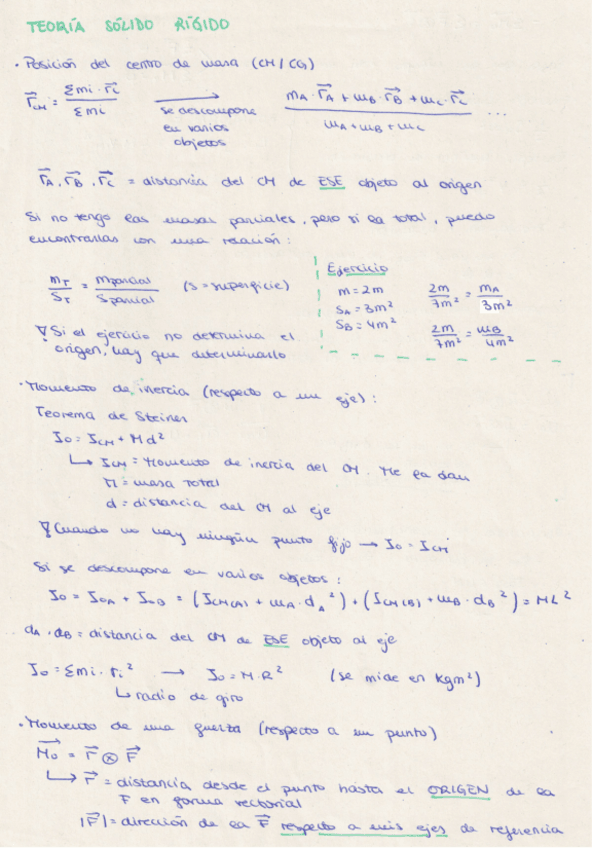 TEORÍA SÓLIDO RÍGIDO
· Posición del centro de masa (CM/CG)
r⃗CM = Σmi · r⃗i / Σmi → se descompone en varios objetos mA · r⃗A + mB · r⃗B + mC · r⃗C / mA + mB + mC ...
r⃗A, r⃗B, r⃗C = distancia del CM de ESE objeto al origen
Si no tengo las masas parciales, pero si la total, puedo
encontrarlas con una relación:
mT / ST = mparcial / Sparcial (S = superficie)
Ejercicio
m = 2m
SA = 3m²
SB = 4m²
2m / 7m² = mA / 3m²
2m / 7m² = mB / 4m²
Si el ejercicio no determina el
origen, hay que determinarlo
· Momento de inercia (respecto a un eje):
Teorema de Steiner
Io = ICM + Md²
↳ ICM = Momento de inercia del CM. Me la dan
M = masa total
d = distancia del CM al eje
Cuando no hay ningún punto fijo → Io = ICM
Si se descompone en varios objetos:
Io = IoA + IoB = (ICM(A) + mA · dA²) + (ICM(B) + mB · dB²) = ML²
dA, dB = distancia del CM de ESE objeto al eje
Io = Σmi · ri² → Io = M · R² (se mide en Kgm²)
↳ radio de giro
· Momento de una fuerza (respecto a un punto)
M⃗o = r⃗ ⊗ F⃗
↳ r⃗ = distancia desde el punto hasta el ORIGEN de la
F en forma vectorial
|F⃗| = dirección de la F⃗ respecto a mis ejes de referencia